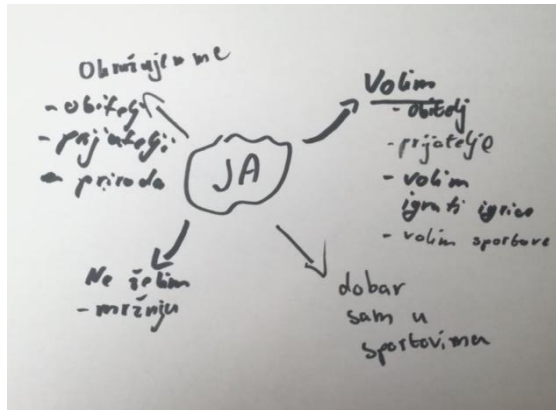 Okružuje me
- obitelj
- prijatelji
- priroda
JA
Volim
- obitelj
- prijatelje
- volim
igrati igrice
- volim sportove
Ne želim
- mržnju
dobar
sam u
sportovima